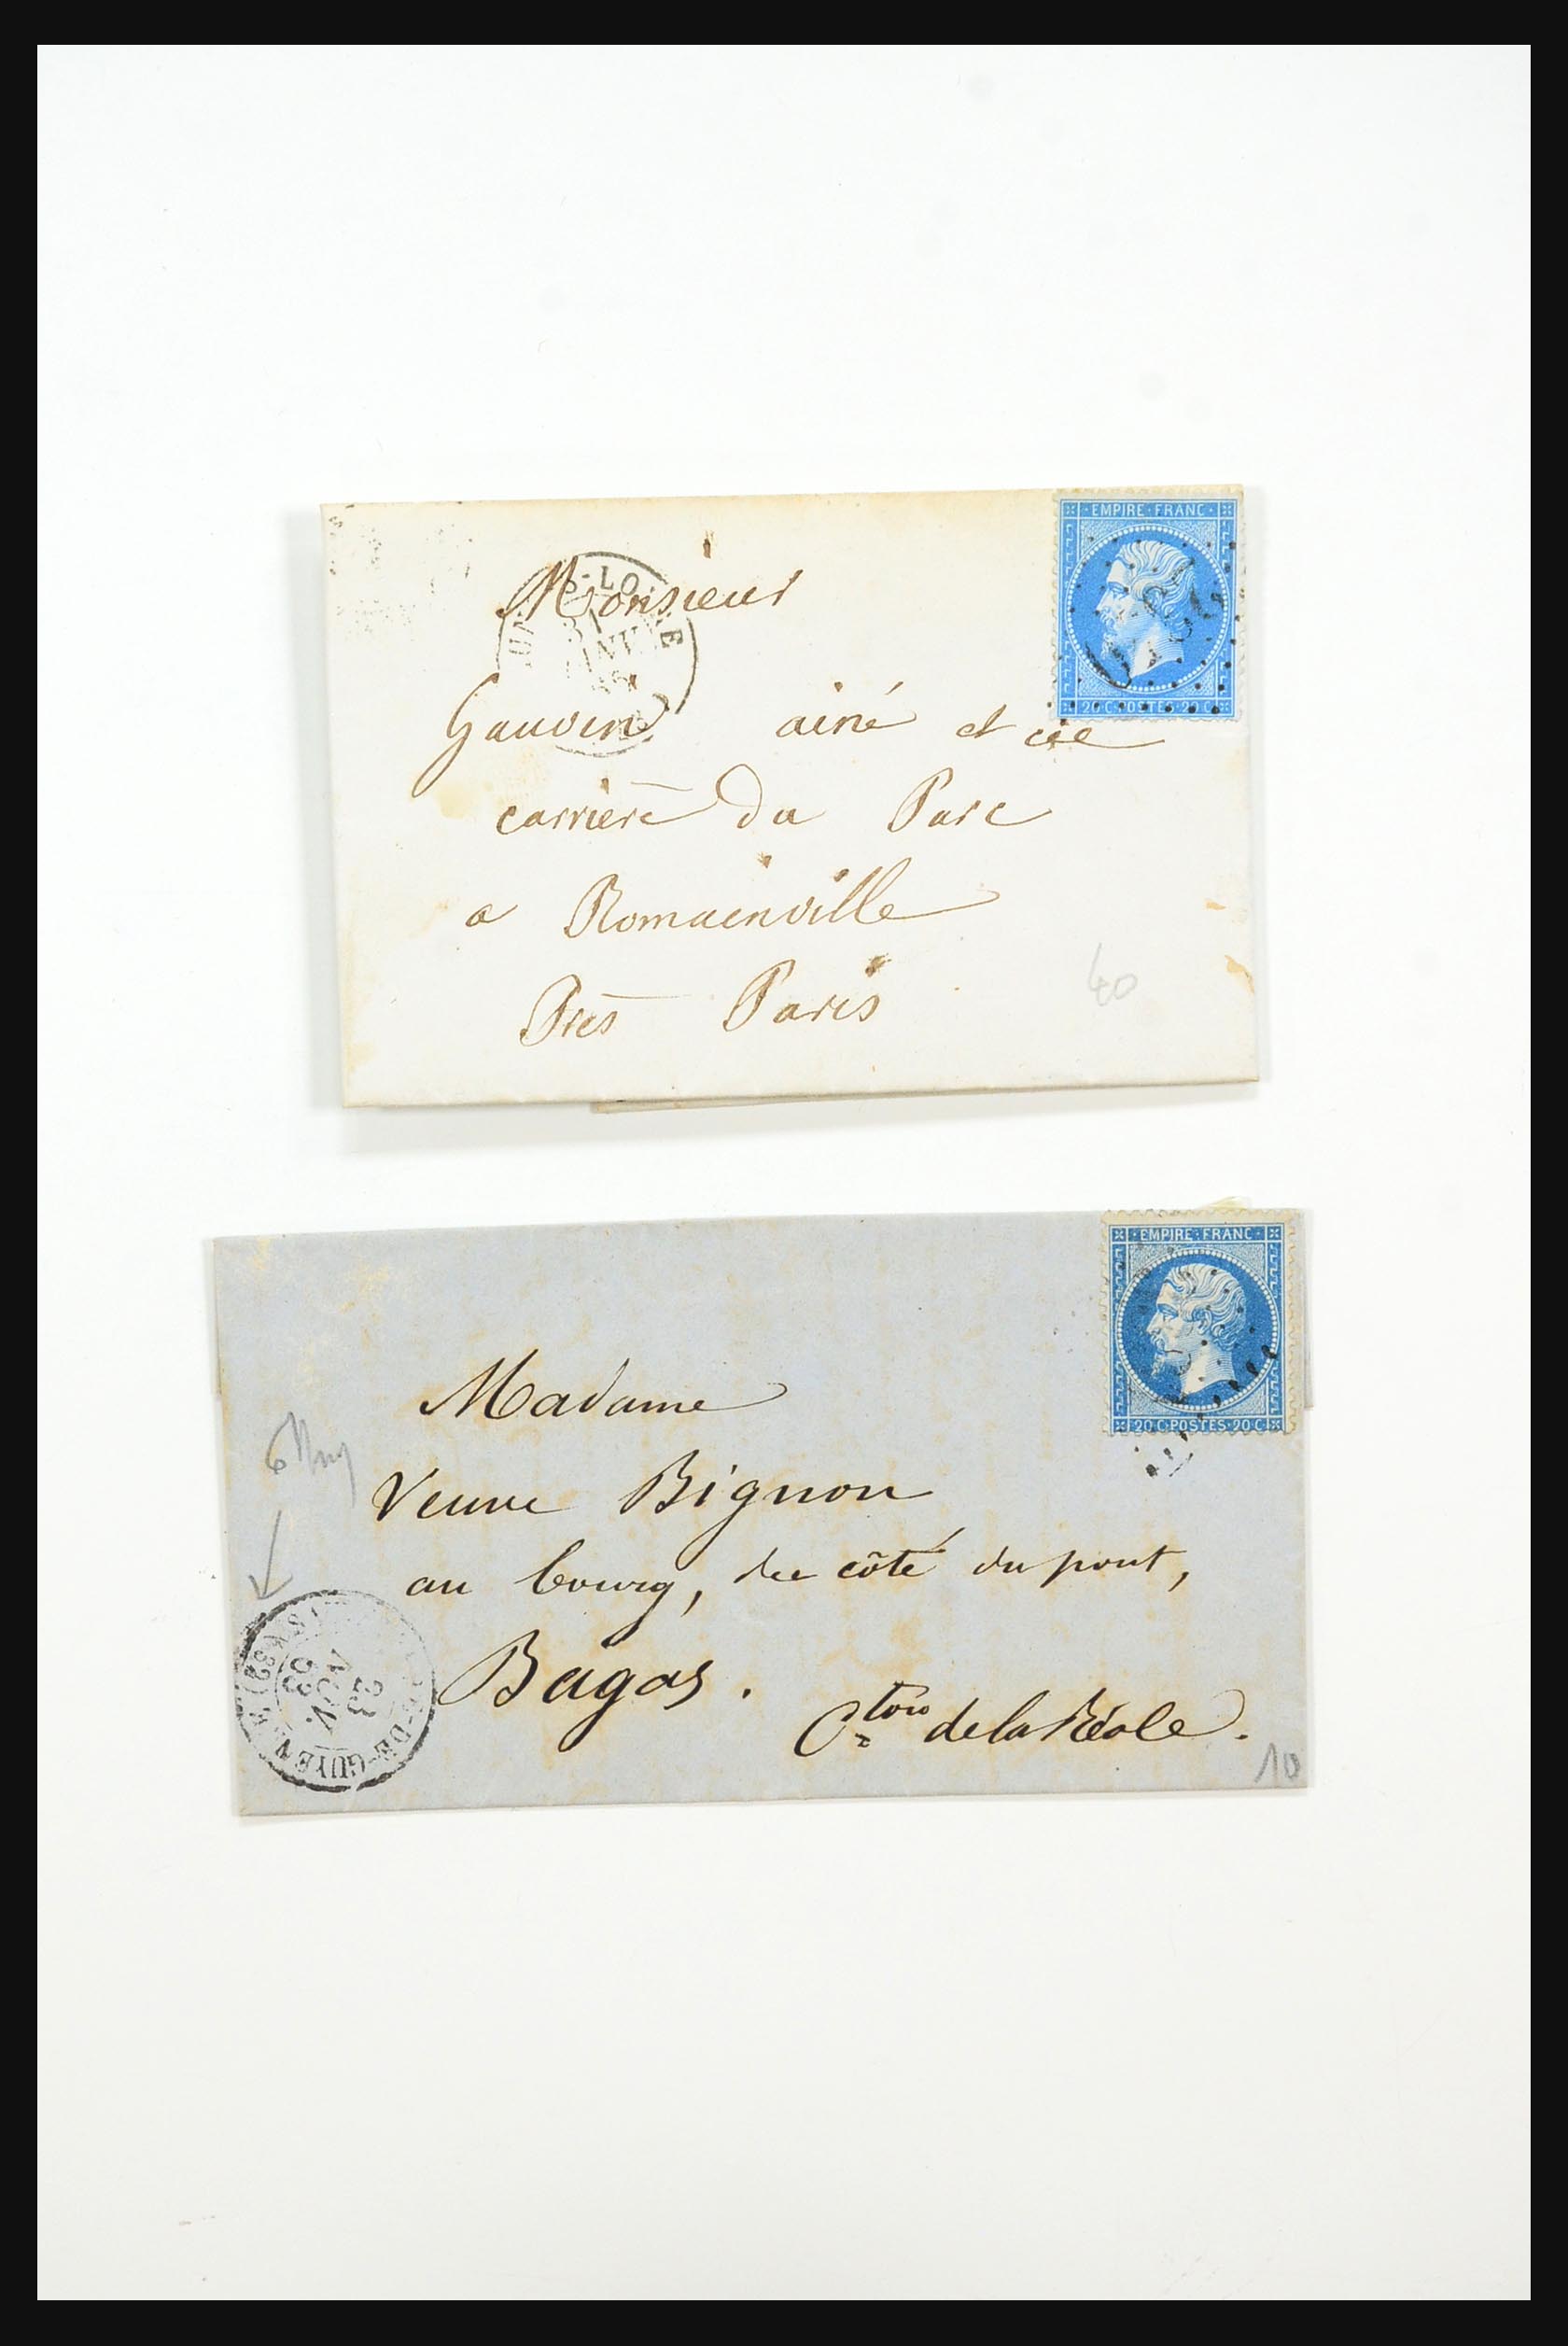 EMPIRE·FRANC·
20 C·POSTES·20 C
Monsieur
Gauvin ainé et cie
carriere Du Parc
a Romainville
Près Paris
40
EMPIRE·FRANC·
20 C·POSTES·20 C
Madame
Veuve Bignon
au bourg, du côté du pont,
Bagas.
Cton de la Réole.
10
23
NOV.
63
DE-GUYENNE (32)